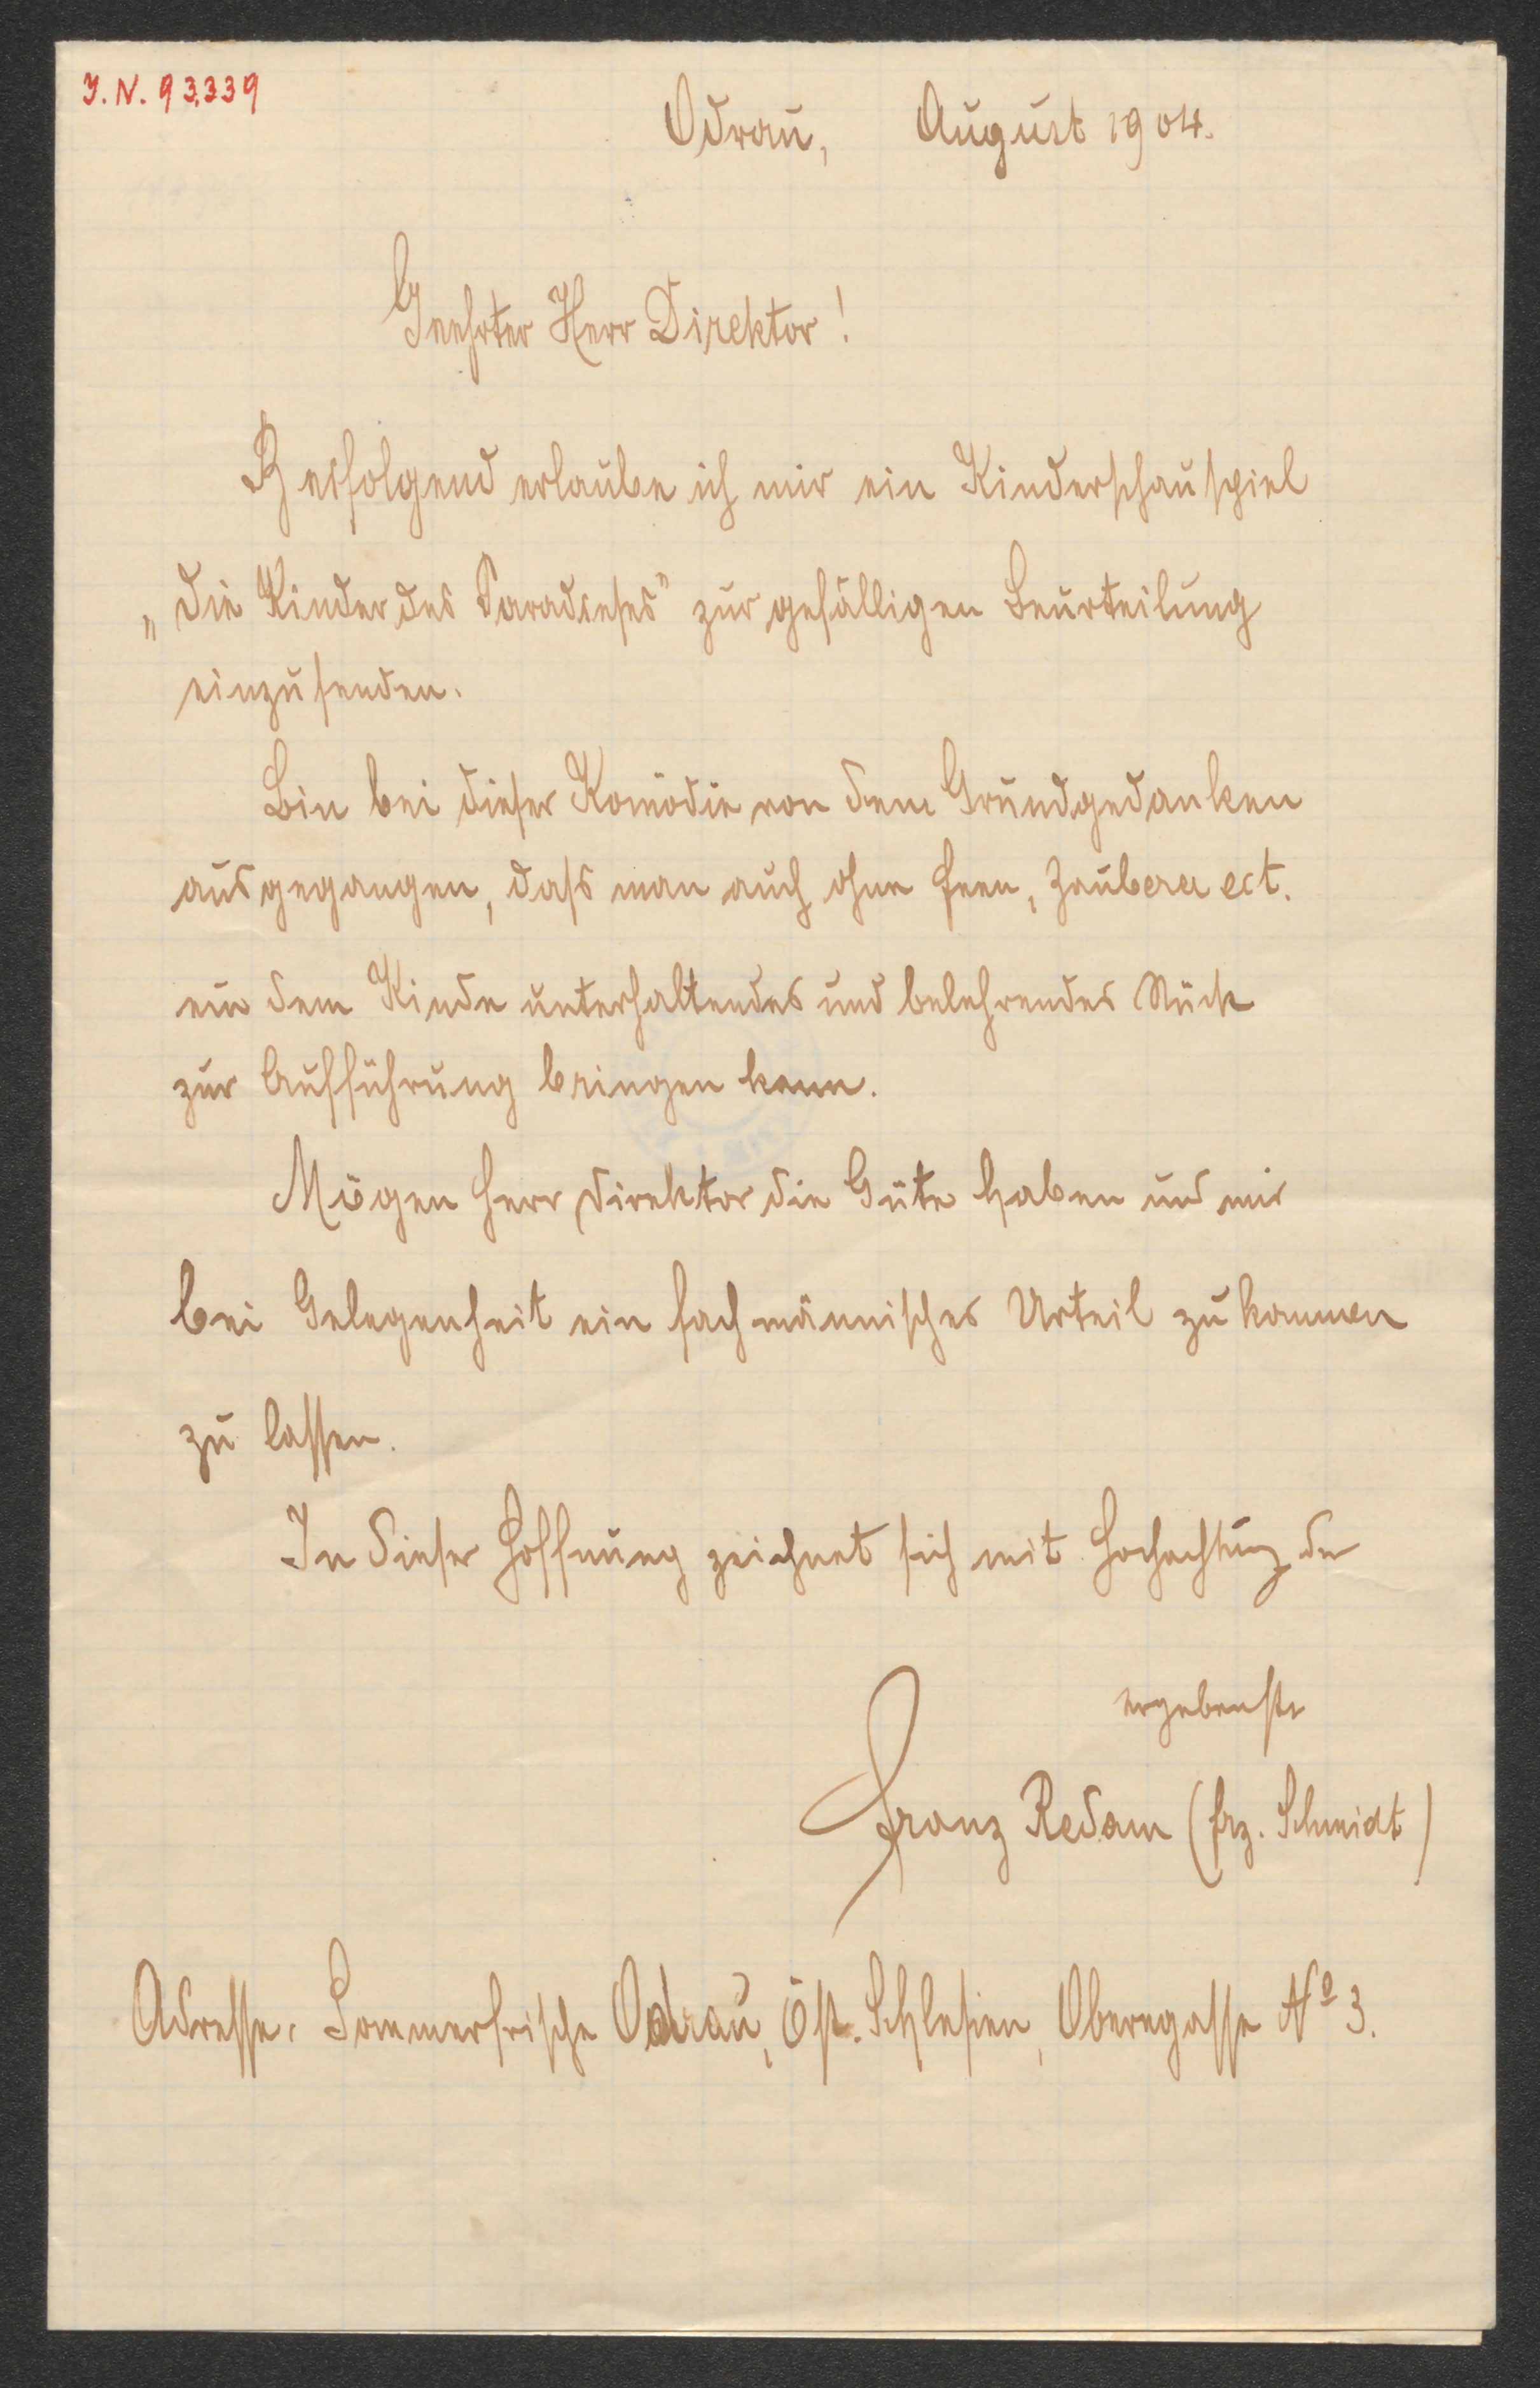 J. N. 93.339
Odrau, August 1904.
Geehrter Herr Direktor!
Beifolgend erlaube ich mir ein Kinderschauspiel
„Die Kinder des Paradieses" zur gefälligen Beurteilung
einzusenden.
Bin bei dieser Komödie von dem Grundgedanken
ausgegangen, dass man auch ohne Feen, Zauberei ect.
ein dem Kinde unterhaltendes und belehrendes Stück
zur Aufführung bringen kann.
Mögen Herr Direktor die Güte haben und mir
bei Gelegenheit ein fachmännisches Urteil zukommen
zu lassen.
In dieser Hoffnung zeichnet sich mit Hochachtung der
ergebenste
Franz Redam (frz. Schmidt)
Adresse: Sommerfrische Odrau, Öst. Schlesien, Oberegasse No 3.